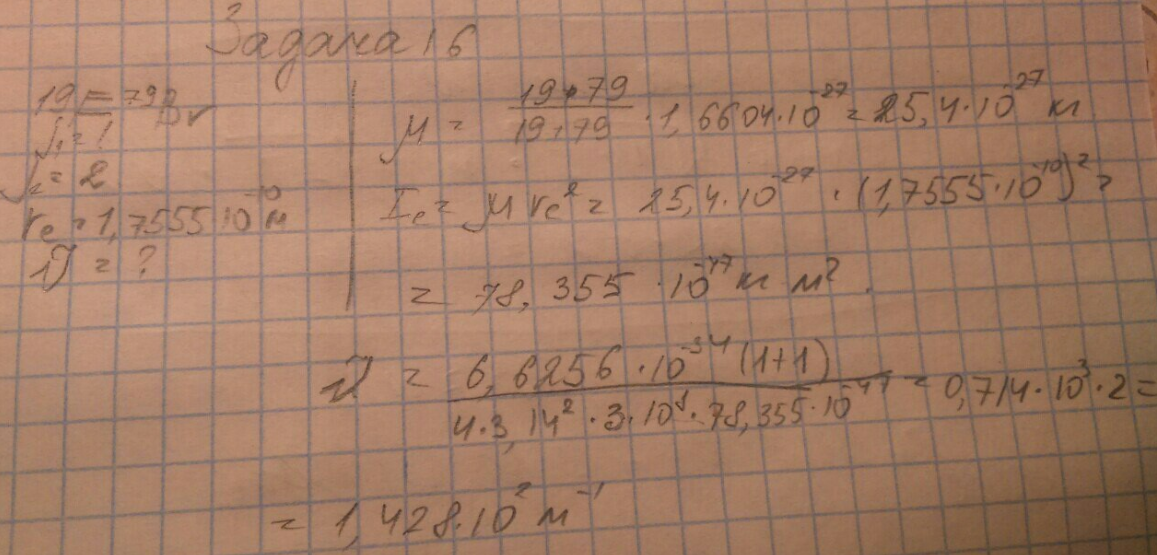 Задача 16
19F 79Br
j₁ = 1
j₂ = 2
rₑ = 1,7555 10⁻¹⁰ м
ν̃ = ?
μ = 19·79 / 19+79 · 1,6604·10⁻²⁷ = 25,4·10⁻²⁷ кг
Iₑ = μ rₑ² = 25,4·10⁻²⁷ · (1,7555·10⁻¹⁰)² =
= 78,355 · 10⁻⁴⁷ кг м².
ν̃ = 6,6256·10⁻³⁴ (1+1) / 4·3,14²·3·10⁸·78,355·10⁻⁴⁷ = 0,714·10³·2 =
= 1,428·10² м⁻¹